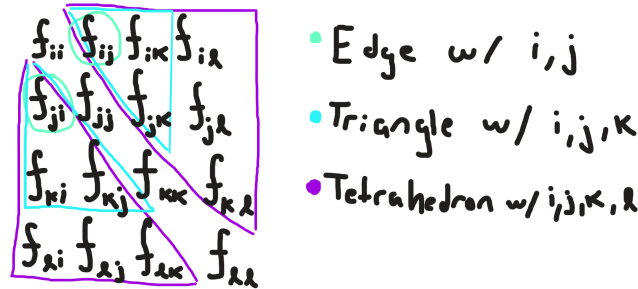 f_ii f_ij f_ik f_il
f_ji f_jj f_jk f_jl
f_ki f_kj f_kk f_kl
f_li f_lj f_lk f_ll
• Edge w/ i,j
• Triangle w/ i,j,k
• Tetrahedron w/ i,j,k,l